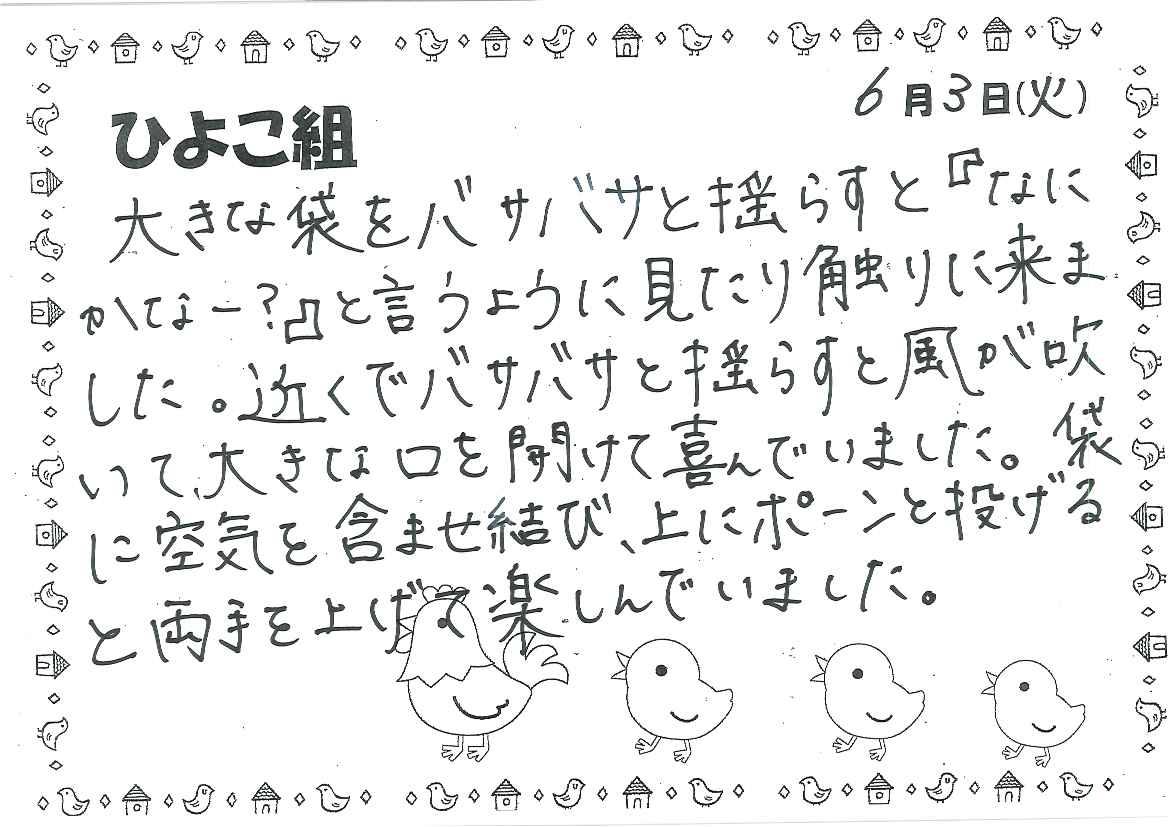 6月3日(火)
ひよこ組
大きな袋をバサバサと揺らすと『なに
かなー?』と言うように見たり触りに来ま
した。近くでバサバサと揺らすと風が吹
いて、大きな口を開けて喜んでいました。袋
に空気を含ませ結び、上にポーンと投げる
と両手を上げて楽しんでいました。